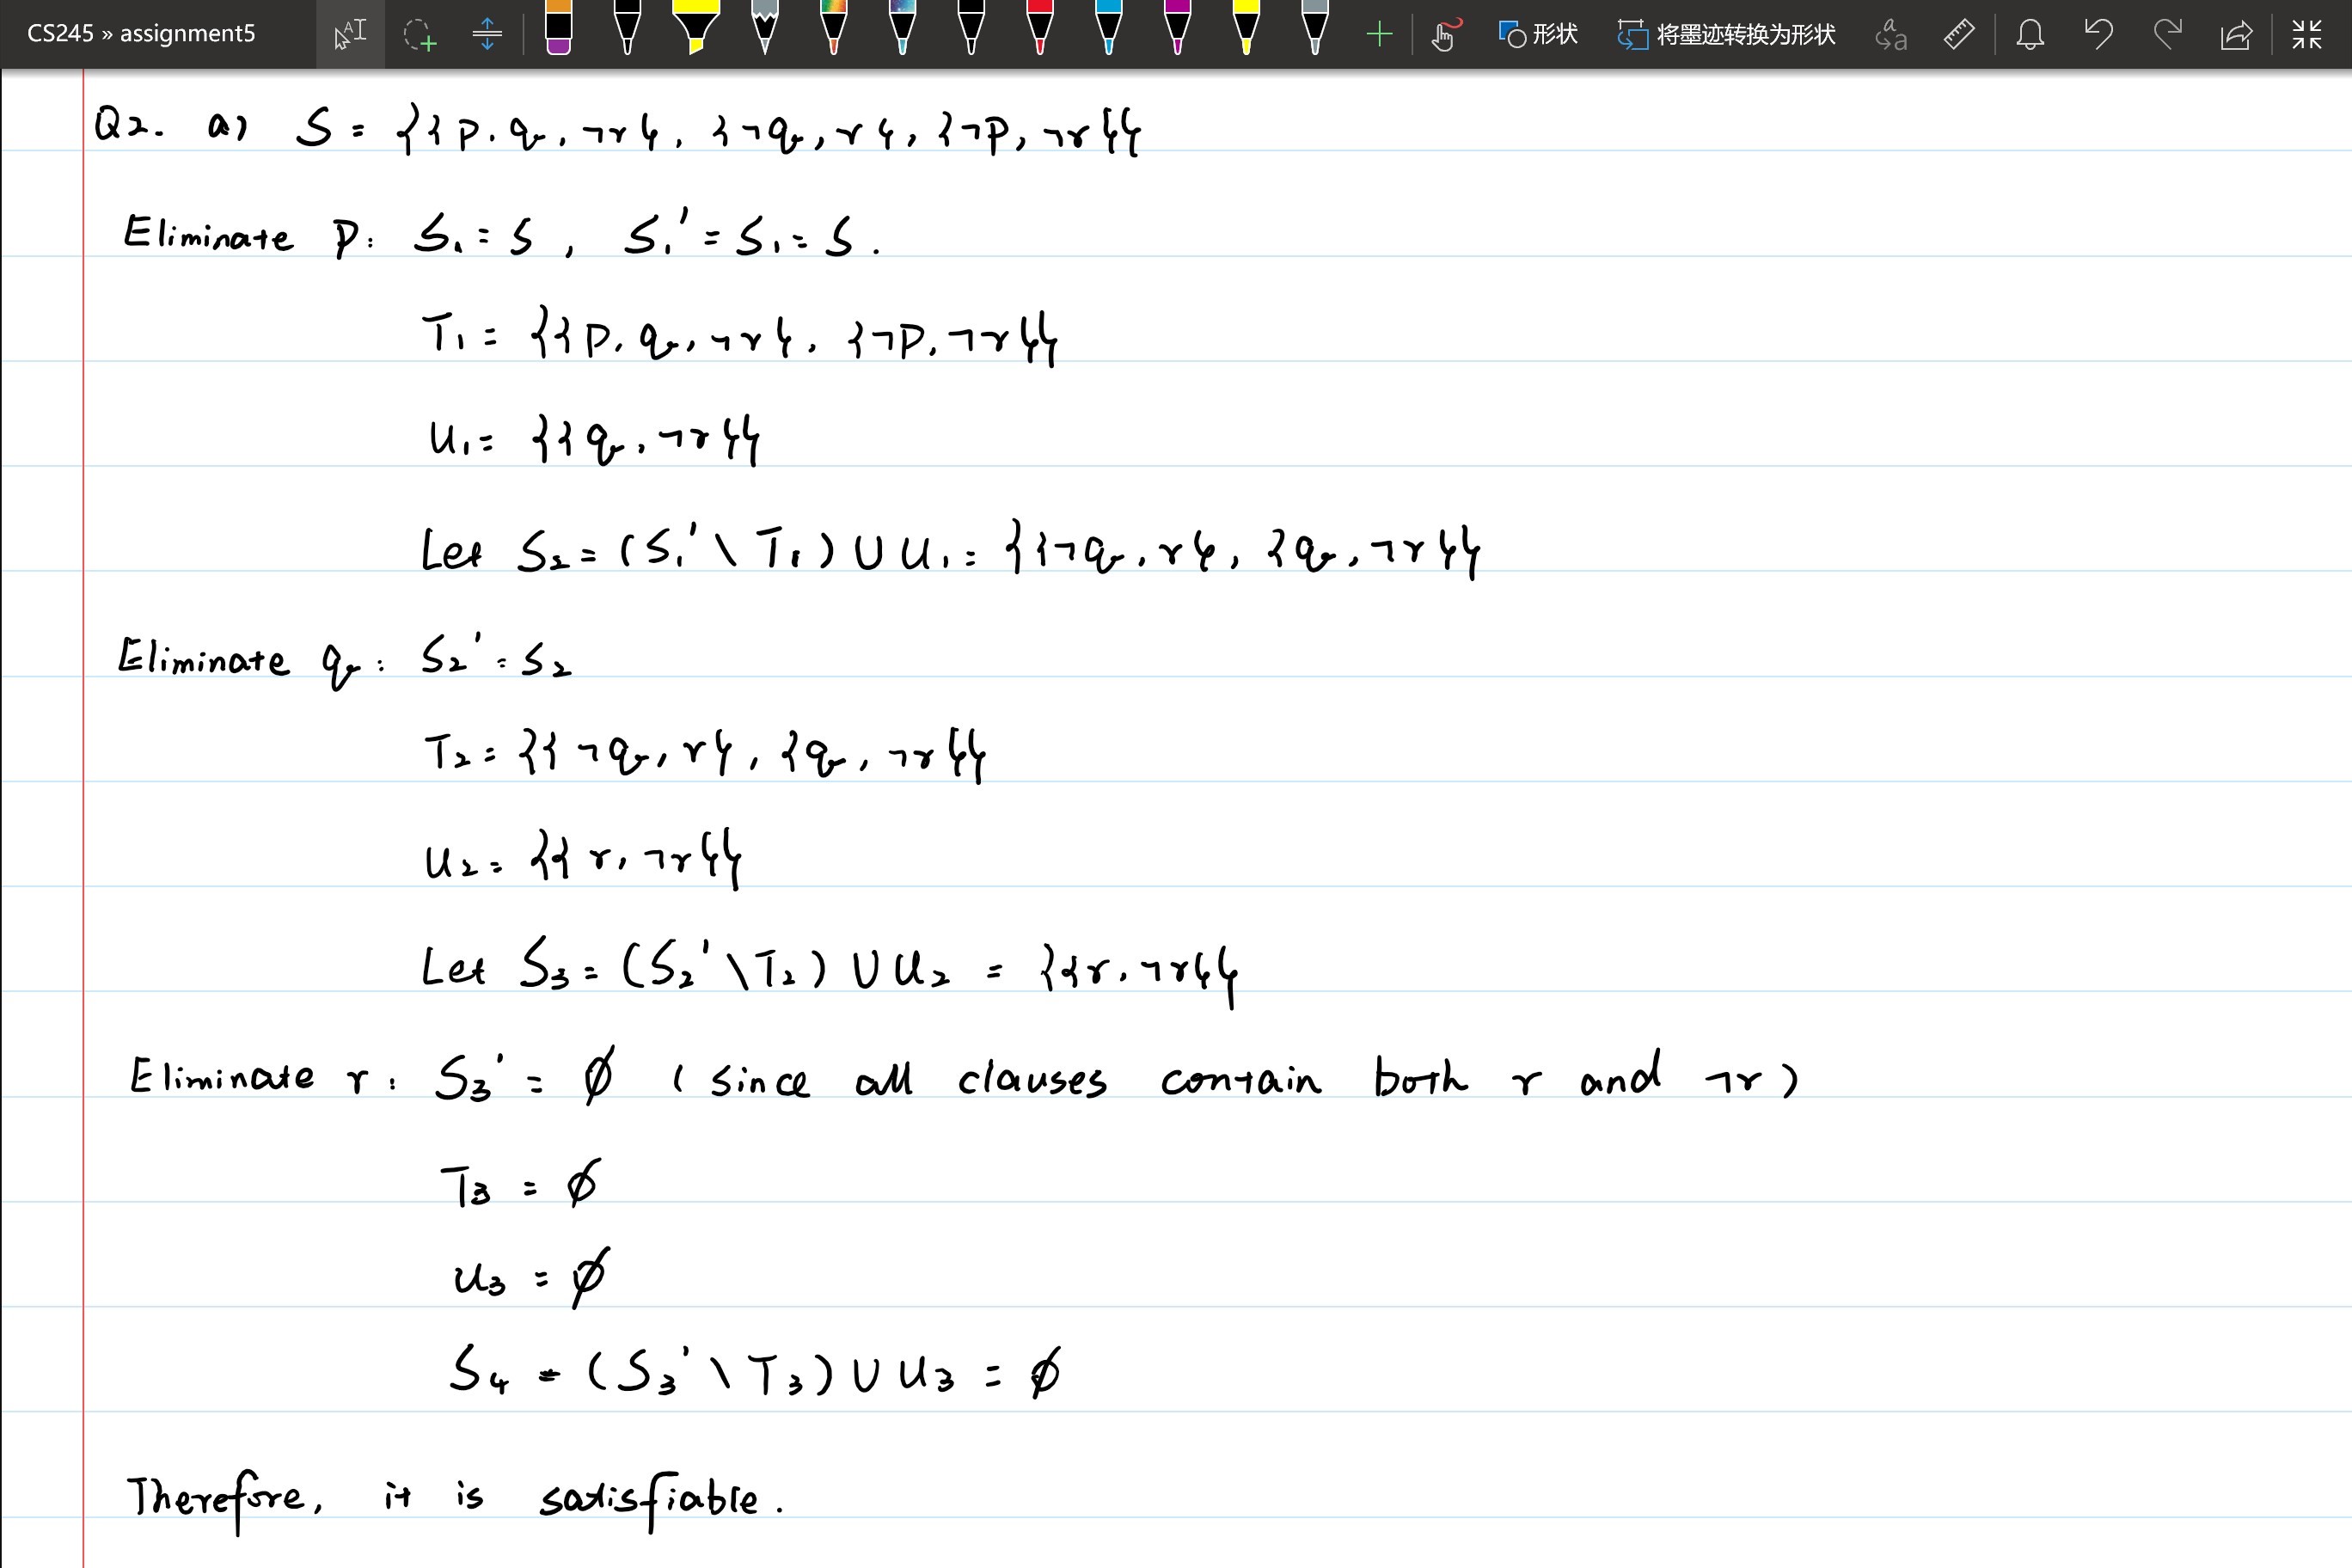 CS245 » assignment5
形状
将墨迹转换为形状
Q2. a) S = {{p, q, ¬r}, {¬q, r}, {¬p, ¬r}}
Eliminate p: S₁ = S , S₁' = S₁ = S .
T₁ = {{p, q, ¬r}, {¬p, ¬r}}
U₁ = {{q, ¬r}}
Let S₂ = (S₁' \ T₁) ∪ U₁ = {{¬q, r}, {q, ¬r}}
Eliminate q : S₂' = S₂
T₂ = {{¬q, r}, {q, ¬r}}
U₂ = {{r, ¬r}}
Let S₃ = (S₂' \ T₂) ∪ U₂ = {{r, ¬r}}
Eliminate r : S₃' = ∅ ( since all clauses contain both r and ¬r )
T₃ = ∅
U₃ = ∅
S₄ = (S₃' \ T₃) ∪ U₃ = ∅
Therefore, it is satisfiable .